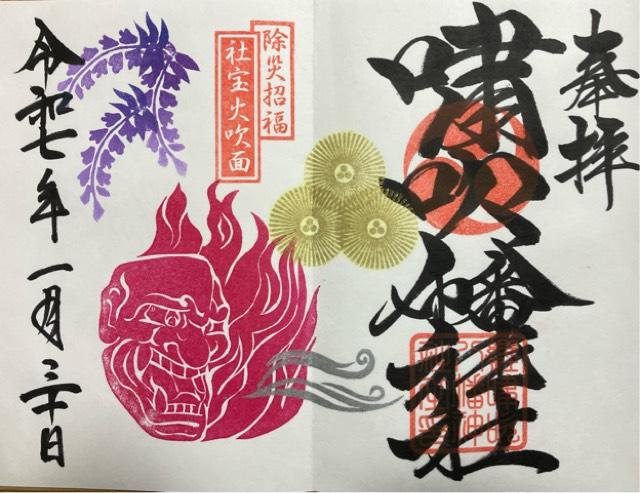 奉拝
嘯吹八幡神社
除災招福
社宝火吹面
令和七年一月三十日